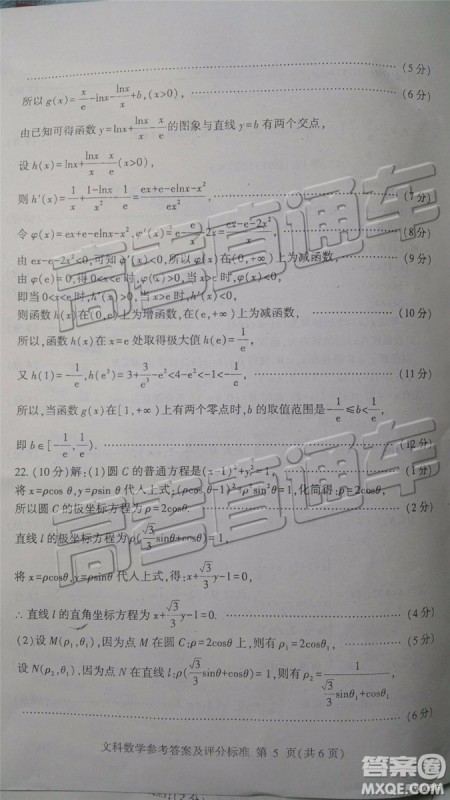 (5分)
所以g(x)=x/e-lnx-lnx/x+b,(x>0), (6分)
由已知可得函数y=lnx+lnx/x-x/e的图象与直线y=b有两个交点,
设h(x)=lnx+lnx/x-x/e(x>0),
则h′(x)=1/x+(1-lnx)/x²-1/e=(ex+e-elnx-x²)/ex², (7分)
令φ(x)=ex+e-elnx-x²,φ′(x)=e-e/x-2x=(ex-e-2x²)/x, (8分)
由ex-e-2x²<0,可知φ′(x)<0,所以φ(x)在(0,+∞)上为减函数, (9分)
由φ(e)=0,得0<x<e时,φ(x)>0,当x>e时,φ(x)<0,
即当0<x<e时,h′(x)>0,当x>e时,h′(x)<0,
则函数h(x)在(0,e)上为增函数,在(e,+∞)上为减函数, (10分)
所以,函数h(x)在x=e处取得极大值h(e)=1/e,
又h(1)=-1/e,h(e³)=3+3/e³-e²<4-e²<-1<-1/e, (11分)
所以,当函数g(x)在[1,+∞)上有两个零点时,b的取值范围是-1/e≤b<1/e,
即b∈[-1/e,1/e). (12分)
22.(10分)解:(1)圆C的普通方程是(x-1)²+y²=1, (1分)
将x=ρcosθ,y=ρsinθ代入上式:(ρcosθ-1)²+ρ²sin²θ=1,化简得:ρ=2cosθ,
所以圆C的极坐标方程为ρ=2cosθ. (2分)
直线l的极坐标方程为ρ(√3/3sinθ+cosθ)=1,
将x=ρcosθ,y=ρsinθ代人上式,得:x+√3/3y-1=0,
∴直线l的直角坐标方程为x+√3/3y-1=0. (4分)
(2)设M(ρ₁,θ₁),因为点M在圆C:ρ=2cosθ上,则有ρ₁=2cosθ₁, (5分)
设N(ρ₂,θ₁),因为点N在直线l:ρ(√3/3sinθ+cosθ)=1,则有ρ₂=1/(√3/3sinθ₁+cosθ₁)
(6分)
文科数学参考答案及评分标准 第 5 页(共6页)
高考直通车
高考直通车
答案圈
MXQE.COM